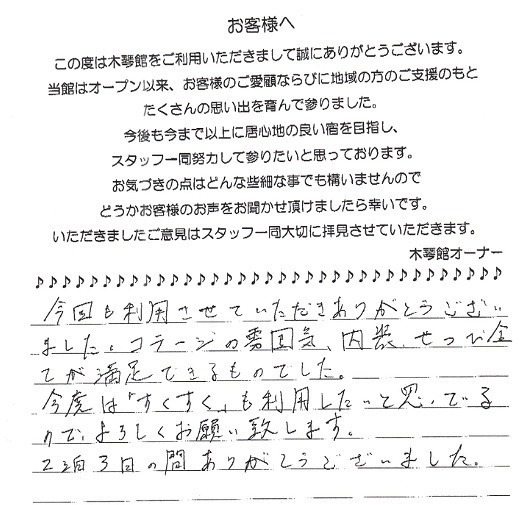 お客様へ
この度は木琴館をご利用いただきまして誠にありがとうございます。
当館はオープン以来、お客様のご愛顧ならびに地域の方のご支援のもと
たくさんの思い出を育んで参りました。
今後も今まで以上に居心地の良い宿を目指し、
スタッフ一同努力して参りたいと思っております。
お気づきの点はどんな些細な事でも構いませんので
どうかお客様のお声をお聞かせ頂けましたら幸いです。
いただきましたご意見はスタッフ一同大切に拝見させていただきます。
木琴館オーナー
♪♪♪♪♪♪♪♪♪♪♪♪♪♪♪♪♪♪♪♪♪♪♪♪♪♪♪♪♪♪♪♪♪♪♪
今回も利用させていただきありがとうござい
ました。コテージの雰囲気、内装、せつび全
てが満足できるものでした。
今度は「すくすく」も利用したいと思っている
ので、よろしくお願い致します。
2泊3日の間ありがとうございました。